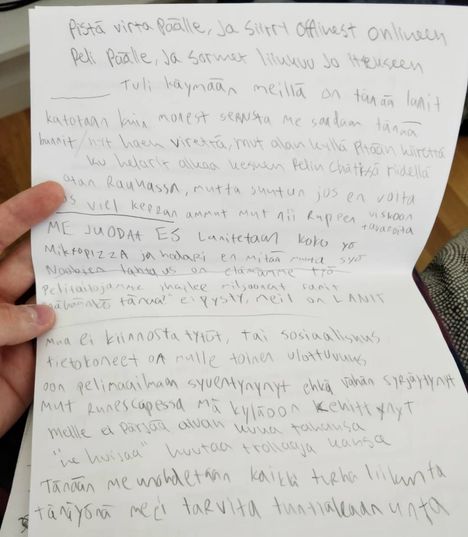 Pistä virta päälle, ja siirry offlinest onlineen
Peli päälle, ja sormet liikkuu jo itsekseen
Tuli käymään meillä on tänää lanit
katotaan kuin monest servusta me saadaan tänää
bannit / niit haen virettä, mut alan kyllä pitään kiirettä
ku helarit alkaa kesken pelin chätissä riidellä
otan rauhassa, mutta suutun jos en voita
viel kerran ammut mut nii rupeen viskoon
tavaroita
ME JUODAT ES Lanitetaan koko yö
Mikropizza ja hodari en mitää muuta syö
Noobien tappaus on elämämme työ
pelitaitojamme ihailee miljoonat fanit
tänää" ei pysty, meil on LANIT
Mua ei kiinnosta tytöt, tai sosiaalisuus
tietokoneet on mulle toinen ulottuvuus
oon pelimaailmaan syventynynyt ehkä vähän syrjäytynyt
Mut Runescapessa mä kylä oon kehittynyt
meille ei pärjää aivan kuka tahansa
huutaa trollaaja kansa
Tänään me unohdetaan kaikki turha liikunta
tänäyönä mei tarvita tuntiakaan unta